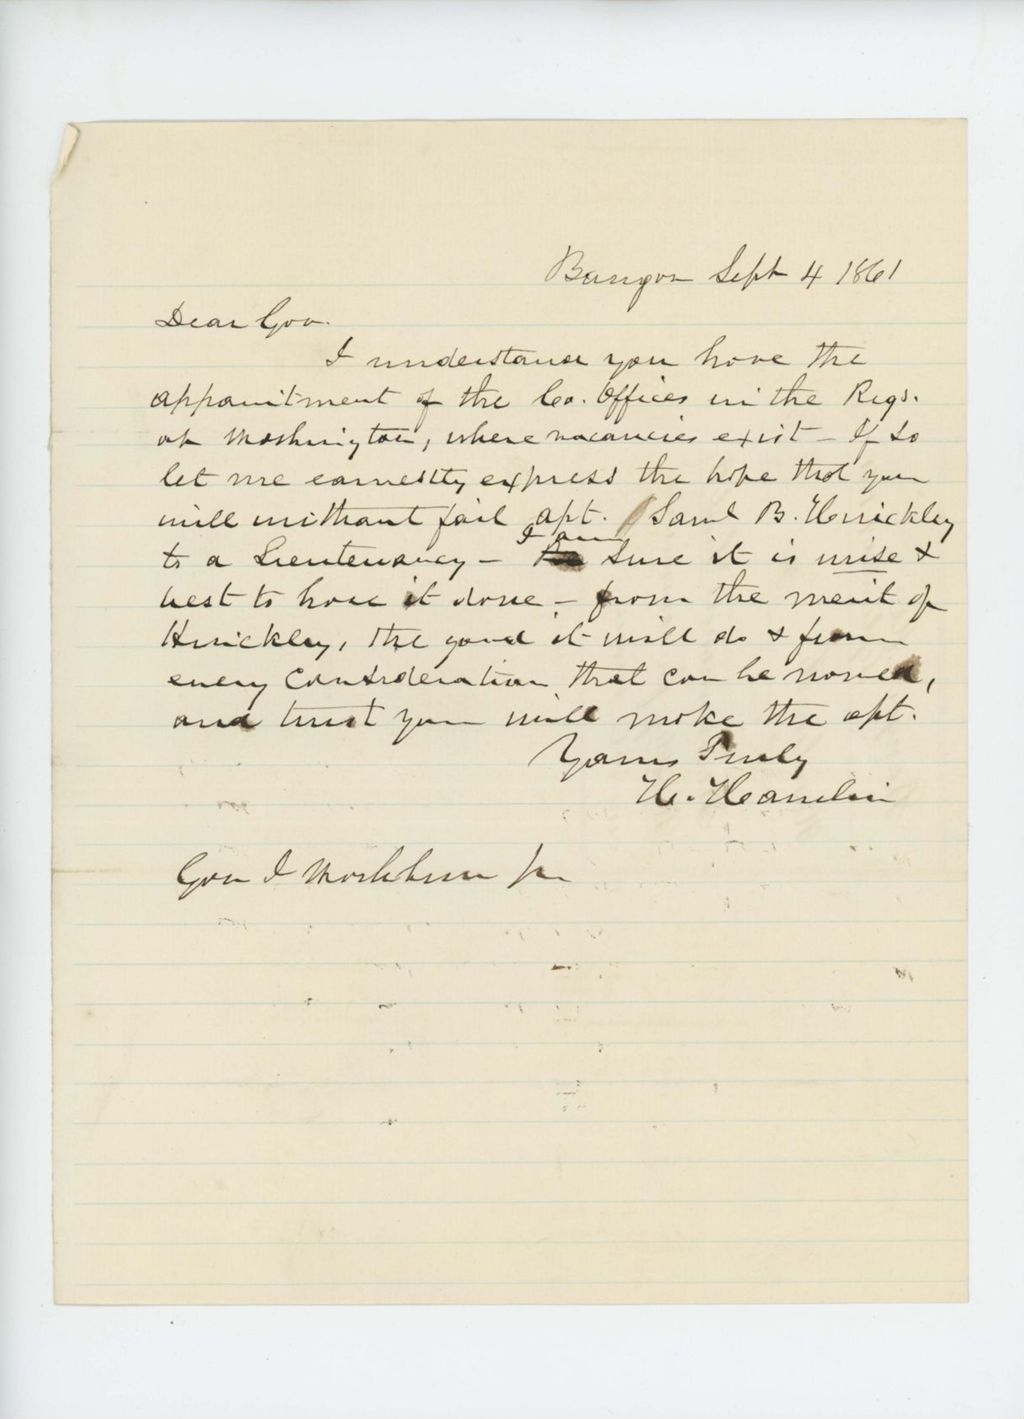 Bangor Sept 4 1861
Dear Gov.
I understand you have the
appointment of the Co. Offices in the Regs.
at Washington, where vacancies exist - If so
let me earnestly express the hope that you
will without fail apt. Saml B. Hinckley
I am
to a Lieutenancy - sure it is wise &
best to have it done - from the merit of
Hinckley, the good it will do & from
every consideration that can be named,
and trust you will make the apt.
Yours Truly
H. Hamlin
Gov I Washburn Jr